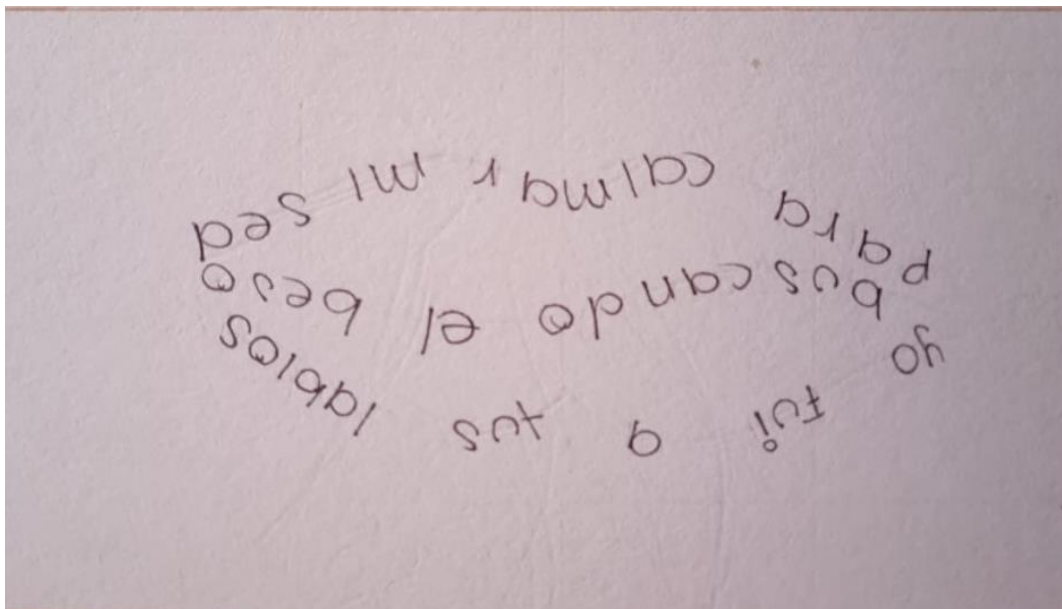 yo fui a tus labios
buscando el beso
para calmar mi sed